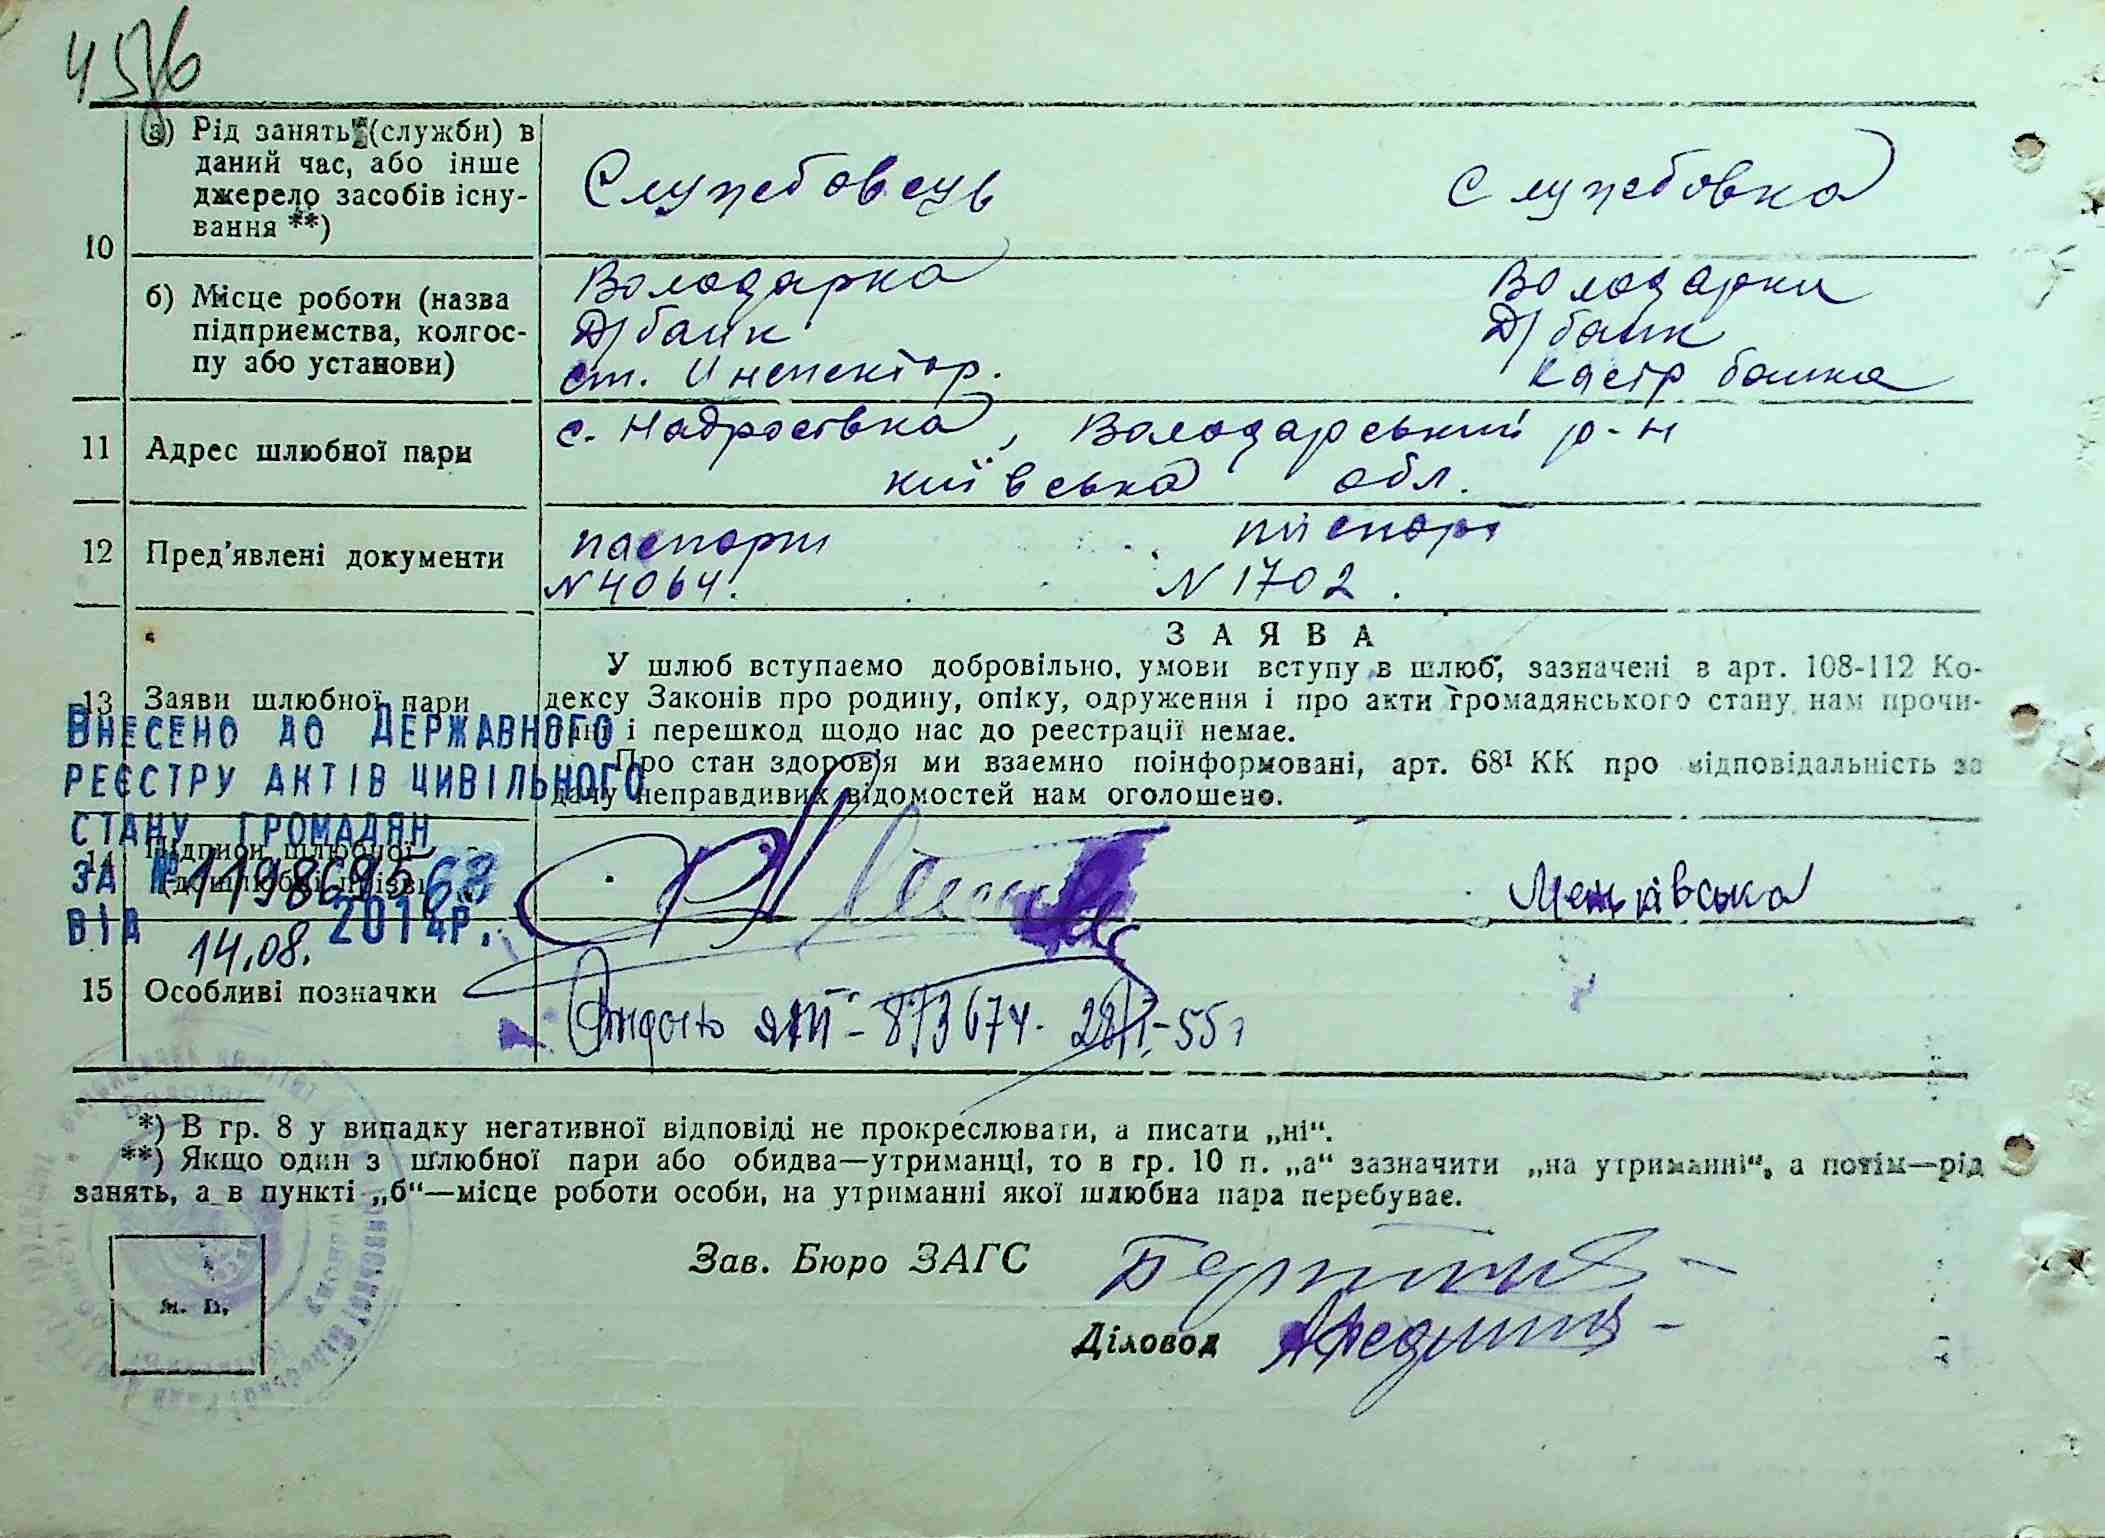 456
10
а) Рід занять (служби) в
даний час, або інше
джерело засобів існу-
вання **)
Службовець
Службовка
б) Місце роботи (назва
підприємства, колгос-
пу або установи)
Володарка
Д/банк
ст. Инспектор.
Володарки
Д/банк
касір банка
11
Адрес шлюбної пари
с. Надросівка, Володарський р-н
київська обл.
12
Пред'явлені документи
паспорт
N 4064.
паспорт
N 1702.
13
Заяви шлюбної пари
ЗАЯВА
У шлюб вступаємо добровільно, умови вступу в шлюб, зазначені в арт. 108-112 Ко-
дексу Законів про родину, опіку, одруження і про акти громадянського стану нам прочи-
і перешкод щодо нас до реєстрації немає.
Про стан здоров'я ми взаємно поінформовані, арт. 68¹ КК про відповідальність за
дачу неправдивих відомостей нам оголошено.
ВНЕСЕНО ДО ДЕРЖАВНОГО
РЕЄСТРУ АКТІВ ЦИВІЛЬНОГО
СТАНУ ГРОМАДЯН
ЗА №
ВІД 14.08. 2014р.
14
Підписи шлюбної
15
Особливі позначки
873674
55 г
*) В гр. 8 у випадку негативної відповіді не прокреслювати, а писати „ні“.
**) Якщо один з шлюбної пари або обидва—утриманці, то в гр. 10 п. „а“ зазначити „на утриманні“, а потім—рід
занять, а в пункті „б“—місце роботи особи, на утриманні якої шлюбна пара перебуває.
Зав. Бюро ЗАГС
Діловод
М. П.